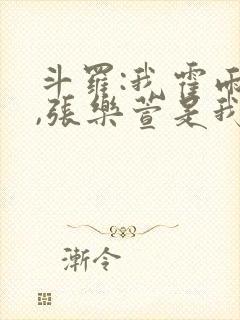 斗羅:我霍雨
,張樂萱是我
漸令